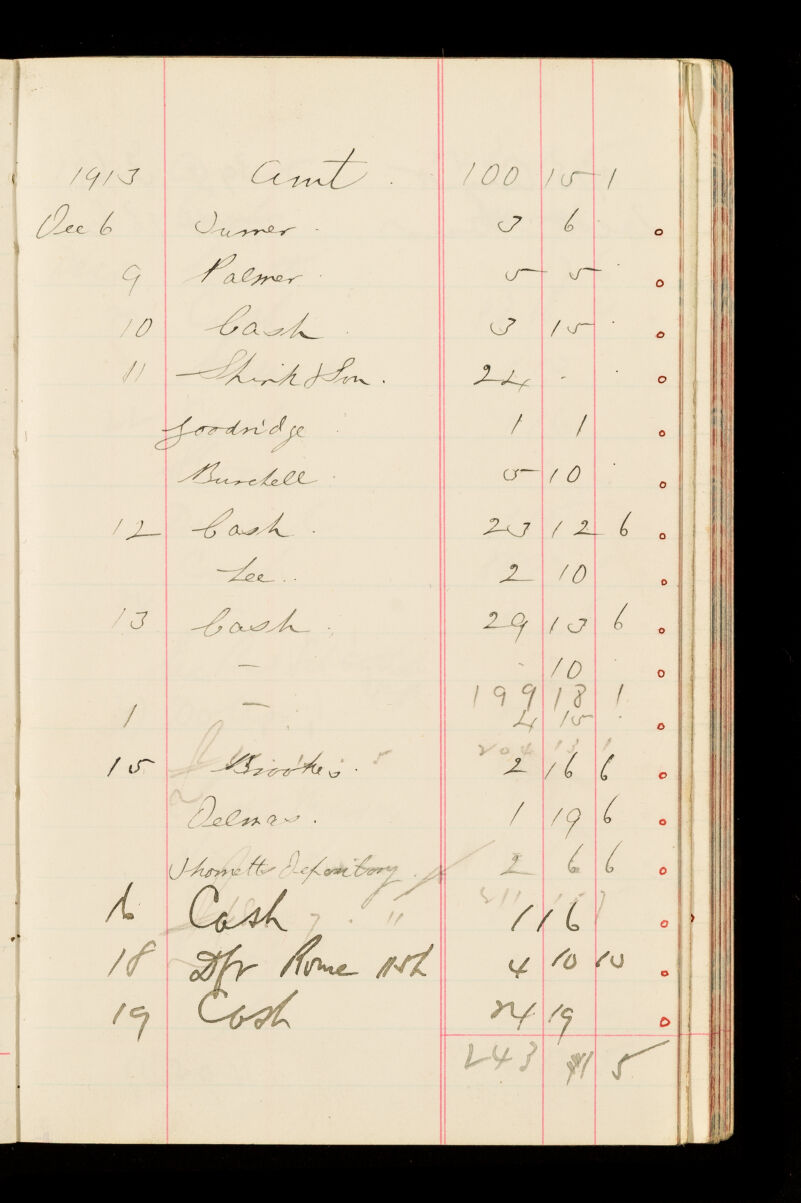 1913 Amt . 100 15 1
Dec 6 Turner . 3 6
9 Palmer . 5 5 .
10 Cash . 3 15 .
11 Shirk & Son . 24 . .
Goodridge . 1 1
Burchell . 5 10 .
12 Cash . 23 12 6
Lee .. 2 10
13 Cash . 29 13 6
— . 10 .
199 18 1
1 — 4 15 .
204 13 1
15 Brooke's . 2 16 6
Delmas . 1 19 6
Thornetts Depository . 2 6 6
211 15 7
16 Cash 1 16
18 Dfr Rome 4 10 10
19 Cash 24 19
243 11 5